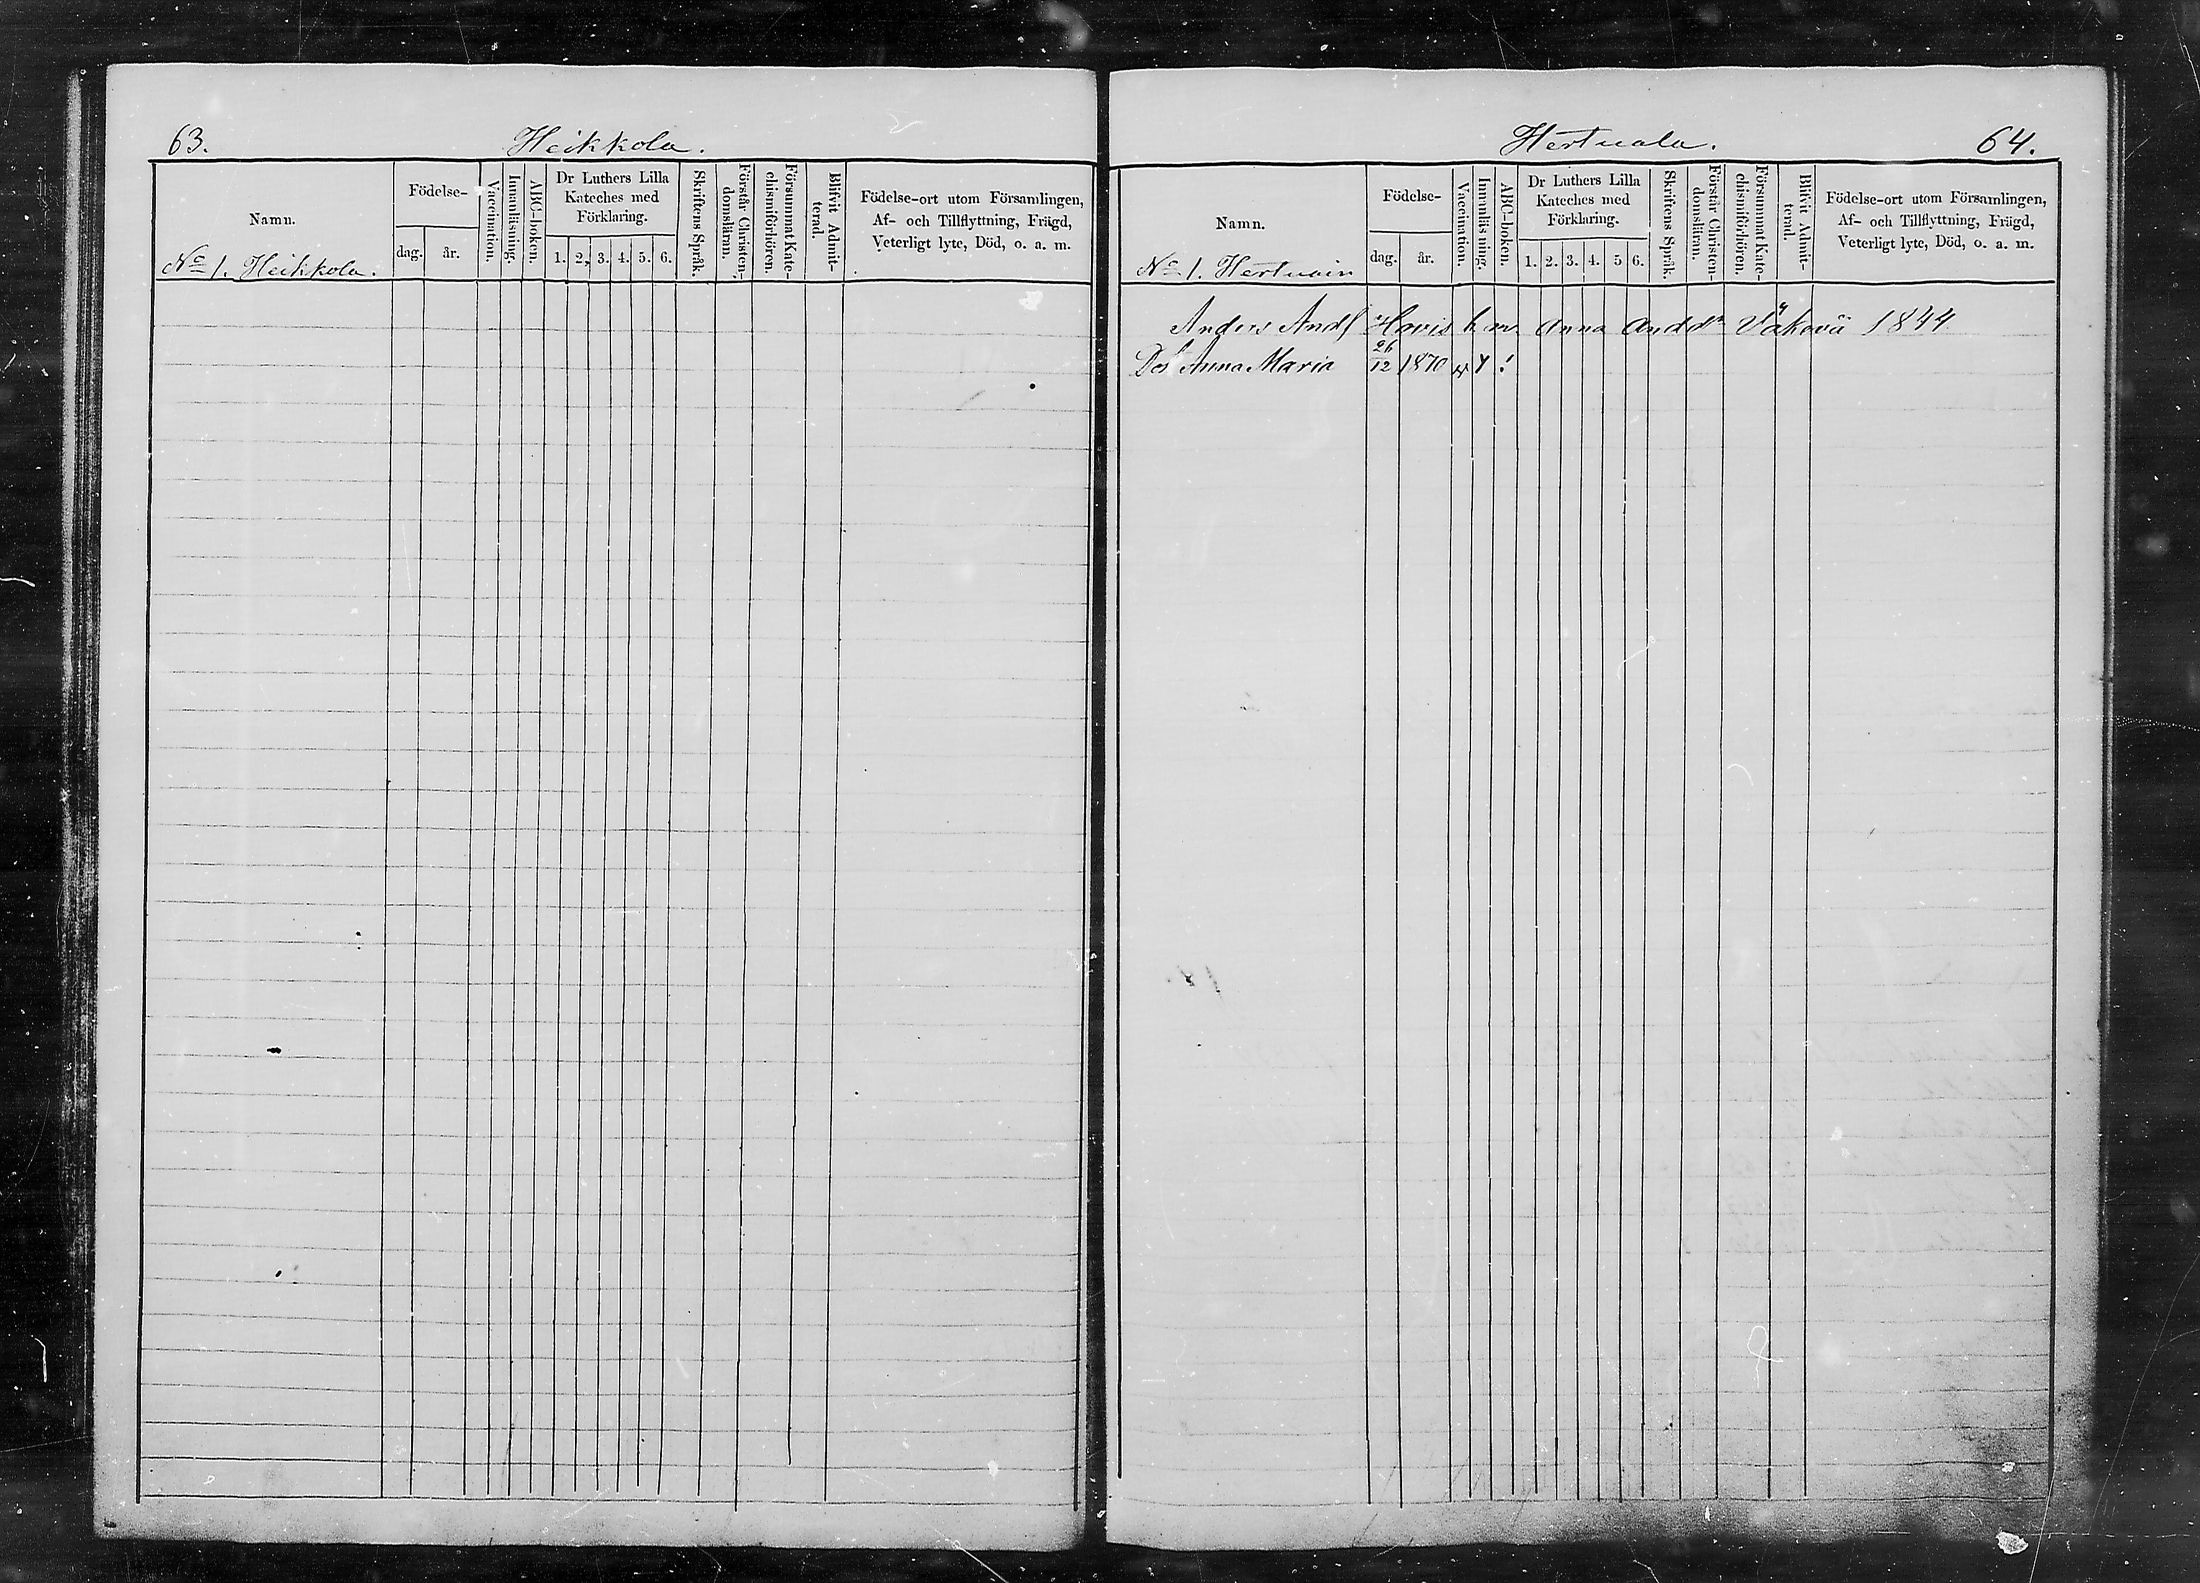 63.
Heikkola.
Namn.
Födelse-
dag.
år.
Vaccination.
Innanläsning.
ABC-boken.
Dr Luthers Lilla
Kateches med
Förklaring.
1. 2. 3. 4. 5. 6.
Skriftens Språk.
Förstår Christen-
domsläran.
Försummat Kate-
chismiförhören.
Blifvit Admit-
terad.
Födelse-ort utom Församlingen,
Af- och Tillflyttning, Frägd,
Veterligt lyte, Död, o. a. m.
No 1. Heikkola.
Hertuala.
64.
Namn.
Födelse-
dag.
år.
Vaccination.
Innanläsning.
ABC-boken.
Dr Luthers Lilla
Kateches med
Förklaring.
1. 2. 3. 4. 5 6.
Skriftens Språk.
Förstår Christen-
domsläran.
Försummat Kate-
chismiförhören.
Blifvit Admit-
terad.
Födelse-ort utom Församlingen,
Af- och Tillflyttning, Frägd,
Veterligt lyte, Död, o. a. m.
No 1. Hertuain
Anders Andf m Anna Andd 1844
Anna Maria 26/12 1870